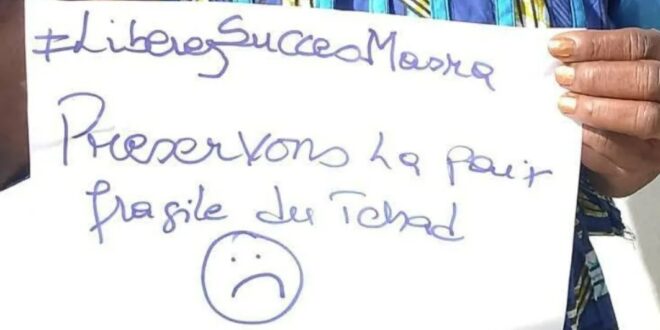 #LiberezSuccesMasra
Preservons La paix
fragile du Tchad